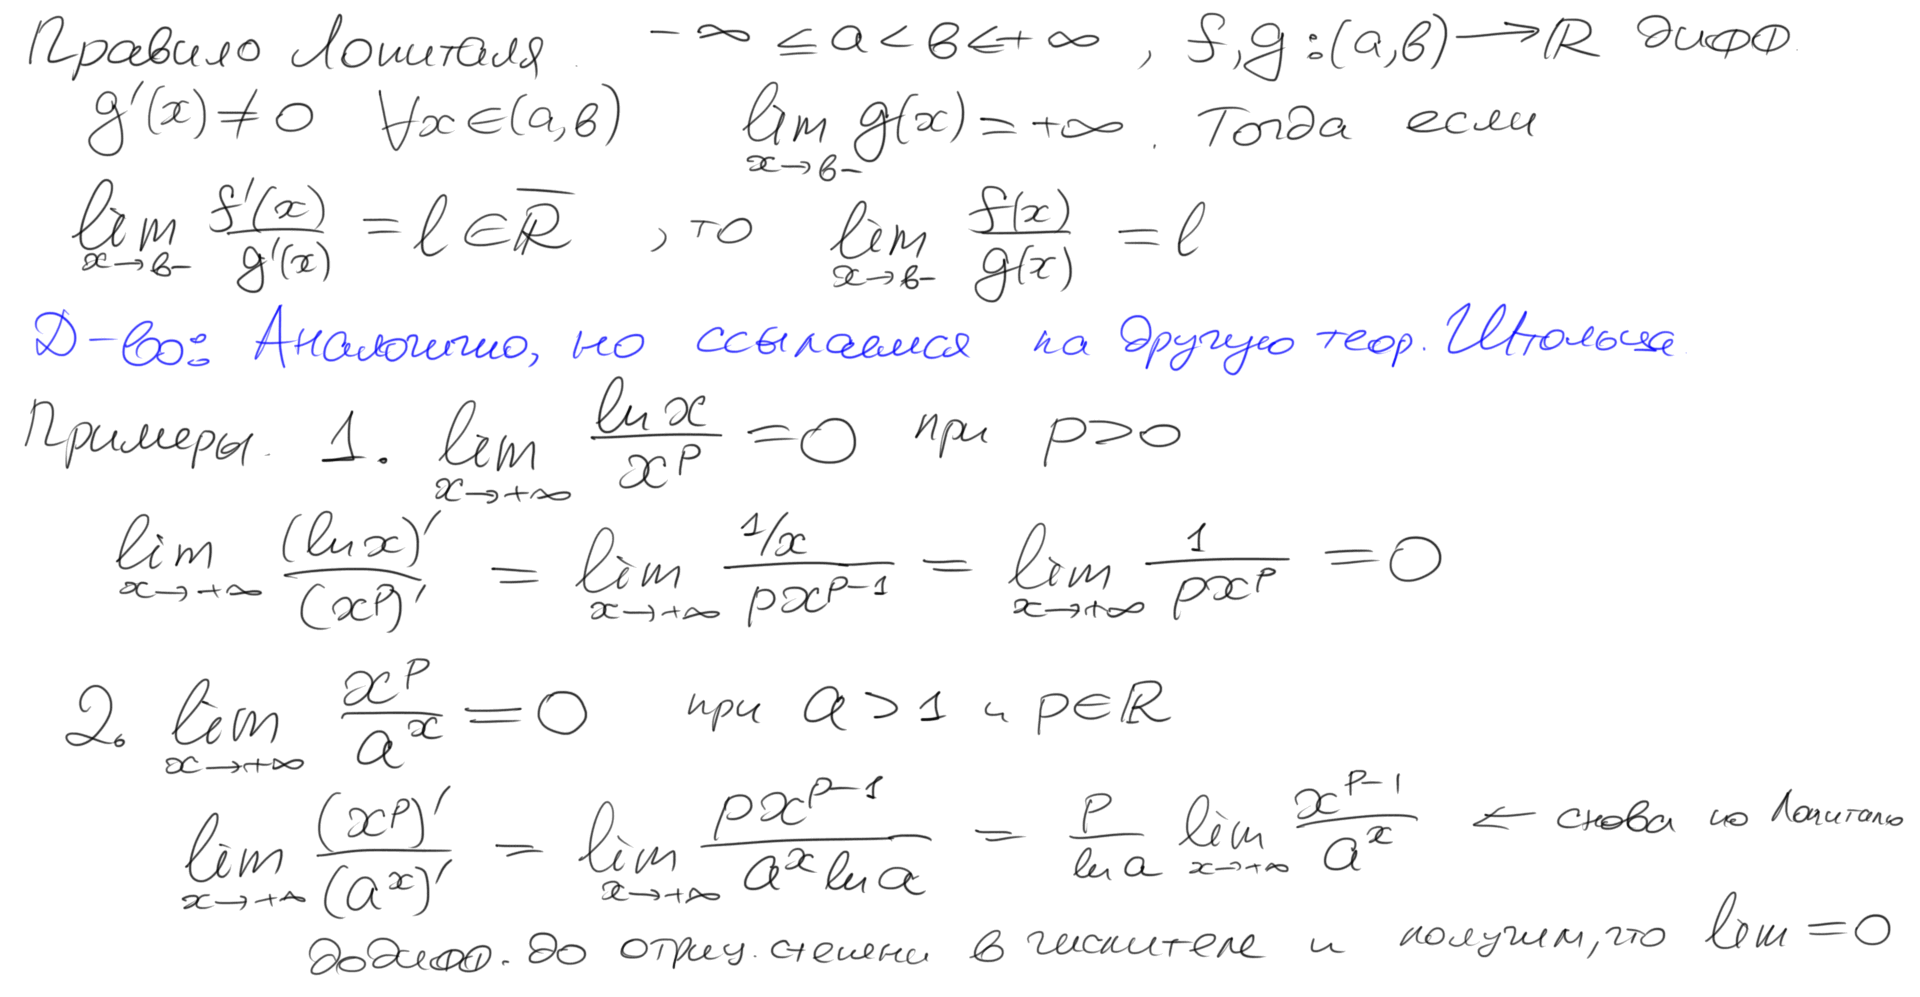 Правило Лопиталя. -∞ ≤ a < b ≤ +∞, f, g : (a, b) → ℝ дифф.
g'(x) ≠ 0 ∀x ∈ (a, b) lim_{x→b-} g(x) = +∞. Тогда если
lim_{x→b-} f'(x)/g'(x) = l ∈ ℝ̅, то lim_{x→b-} f(x)/g(x) = l
Д-во: Аналогично, но ссылаемся на другую теор. Штольца
Примеры. 1. lim_{x→+∞} ln x / x^p = 0 при p > 0
lim_{x→+∞} (ln x)' / (x^p)' = lim_{x→+∞} (1/x) / (p x^{p-1}) = lim_{x→+∞} 1 / (p x^p) = 0
2. lim_{x→+∞} x^p / a^x = 0 при a > 1 и p ∈ ℝ
lim_{x→+∞} (x^p)' / (a^x)' = lim_{x→+∞} p x^{p-1} / (a^x ln a) = p / ln a lim_{x→+∞} x^{p-1} / a^x ← снова по Лопиталю
додифф. до отриц. степени в числителе и получим, что lim = 0